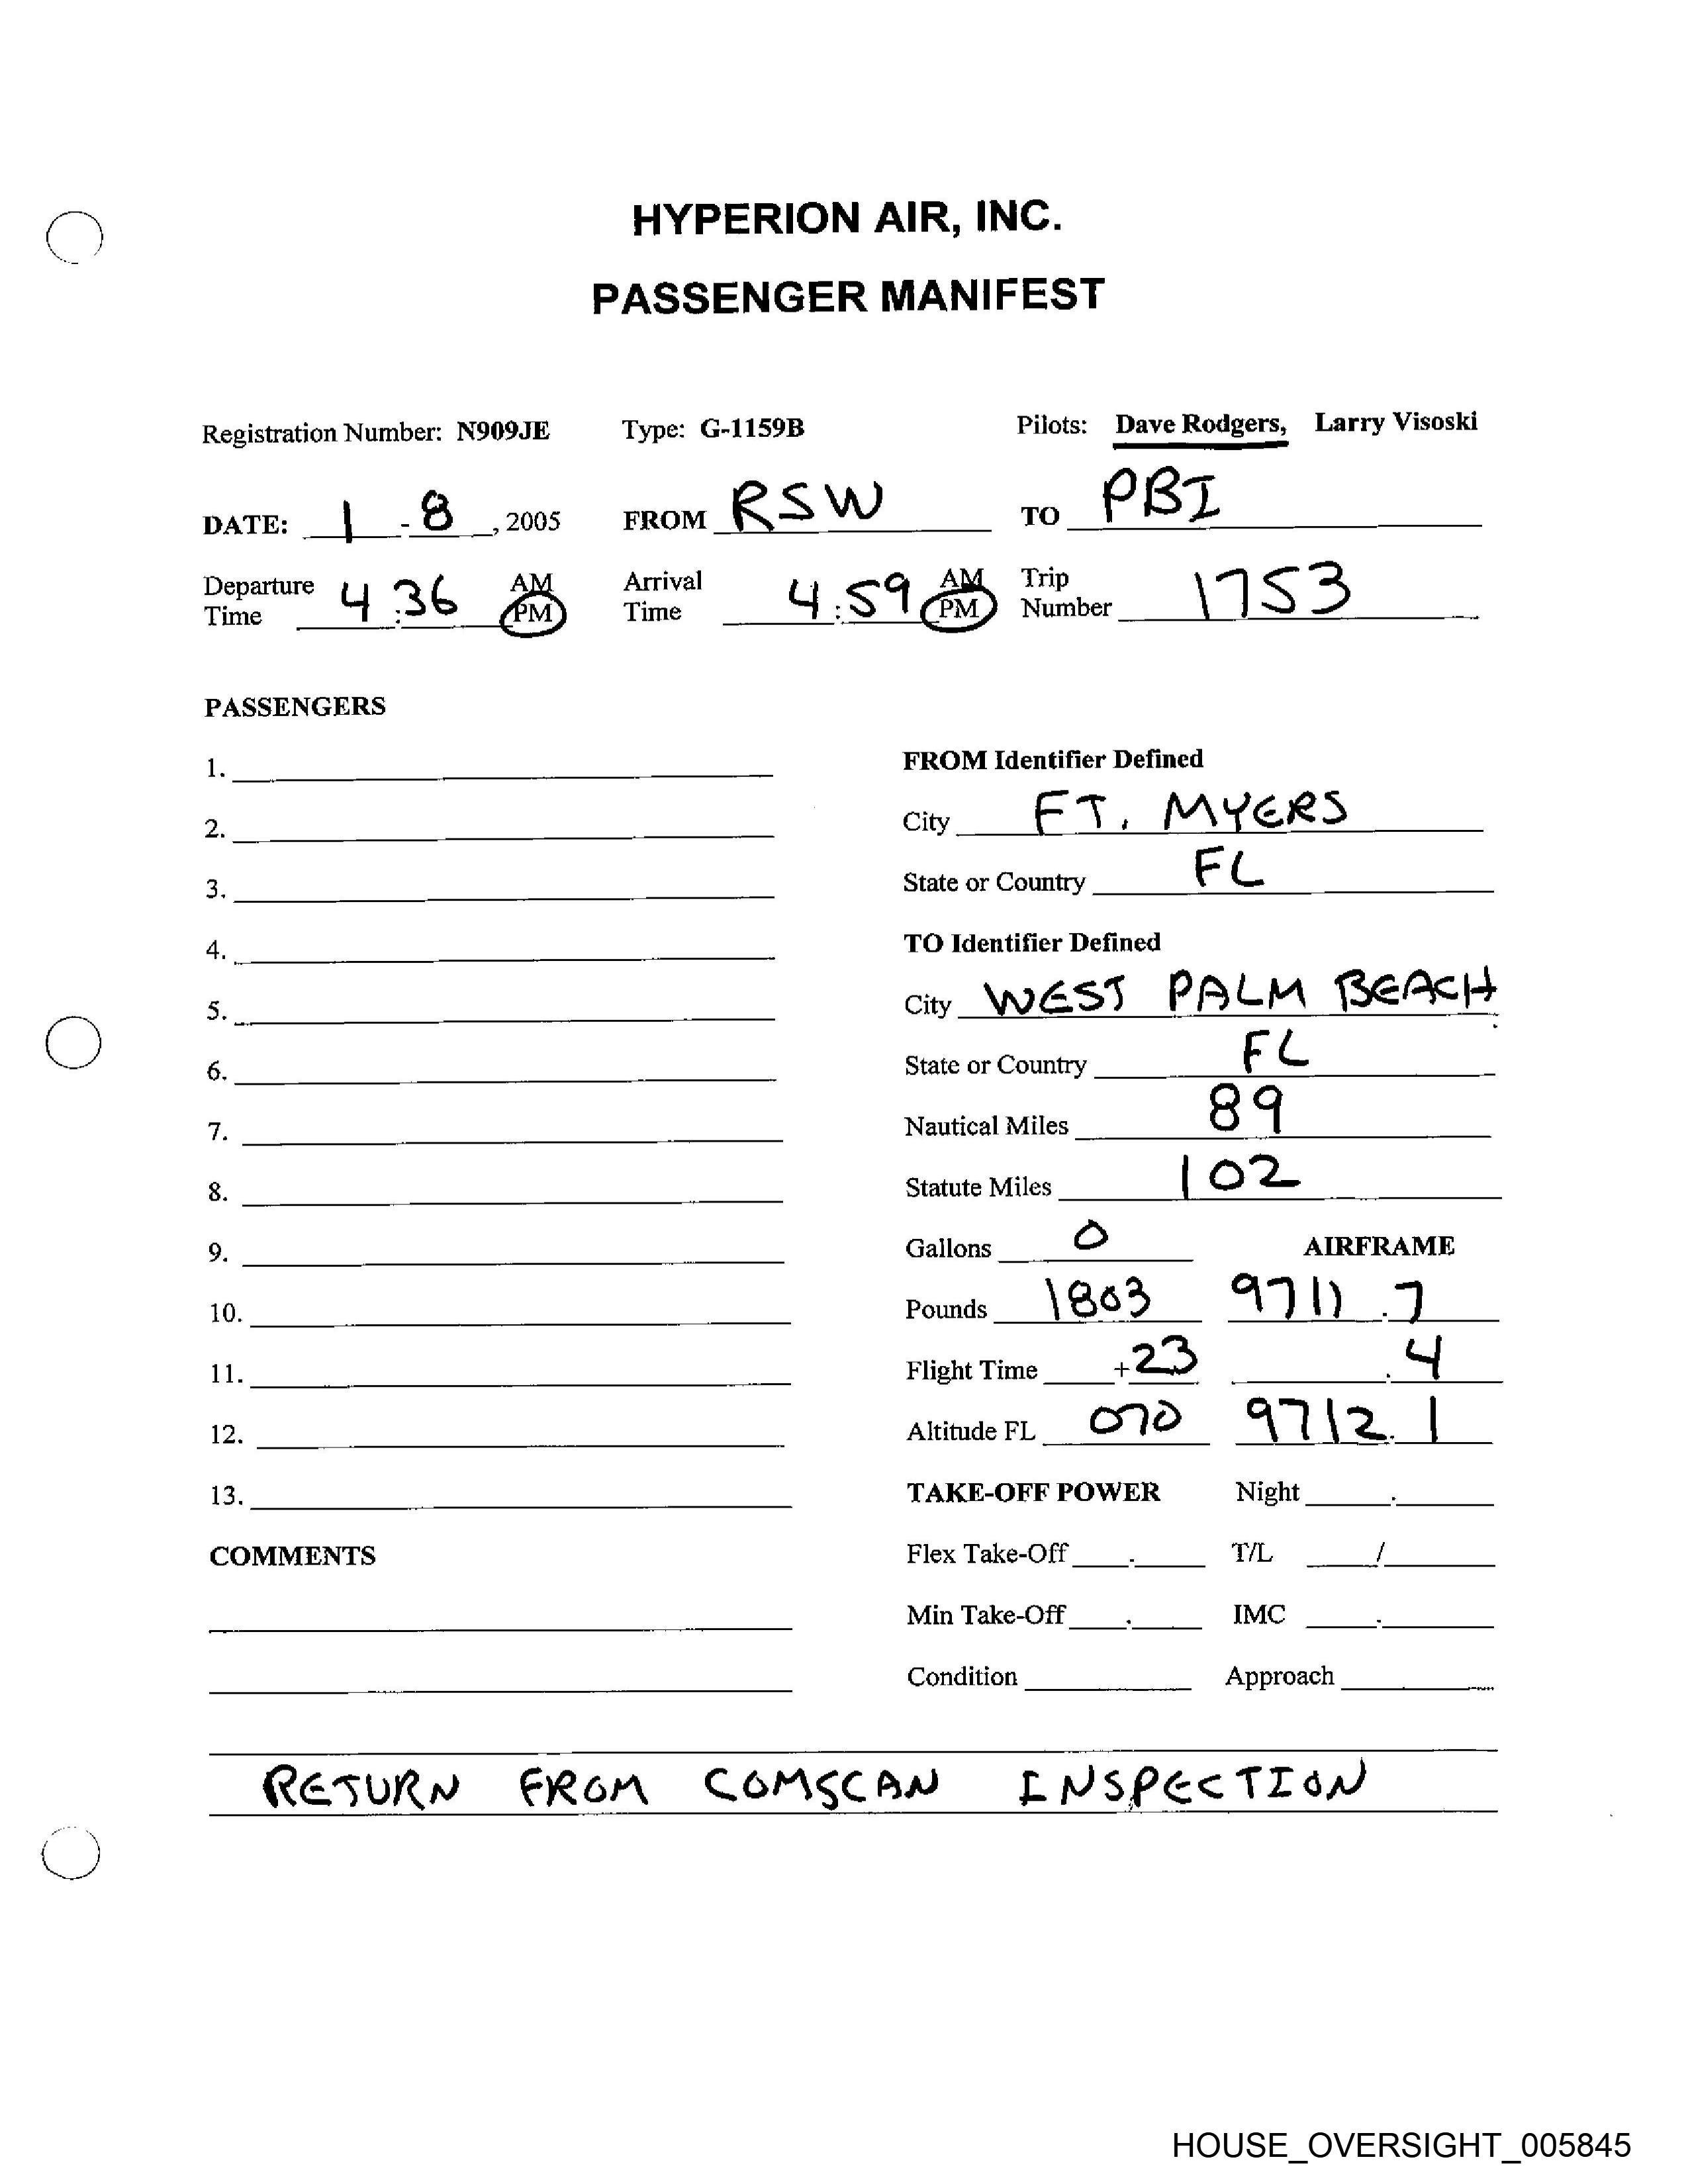 HYPERION AIR, INC.
PASSENGER MANIFEST
Registration Number: N909JE Type: G-1159B Pilots: Dave Rodgers, Larry Visoski
DATE: 1 - 8, 2005 FROM RSW TO PBI
Departure Time 4:36 AM PM Arrival Time 4:59 AM PM Trip Number 1753
PASSENGERS
1.
2.
3.
4.
5.
6.
7.
8.
9.
10.
11.
12.
13.
COMMENTS
FROM Identifier Defined
City FT. MYERS
State or Country FL
TO Identifier Defined
City WEST PALM BEACH
State or Country FL
Nautical Miles 89
Statute Miles 102
Gallons 0 AIRFRAME
Pounds 1803 9711.7
Flight Time +23 .4
Altitude FL 070 9712.1
TAKE-OFF POWER Night .
Flex Take-Off . T/L /
Min Take-Off . IMC .
Condition Approach
RETURN FROM COMSCAN INSPECTION
HOUSE_OVERSIGHT_005845